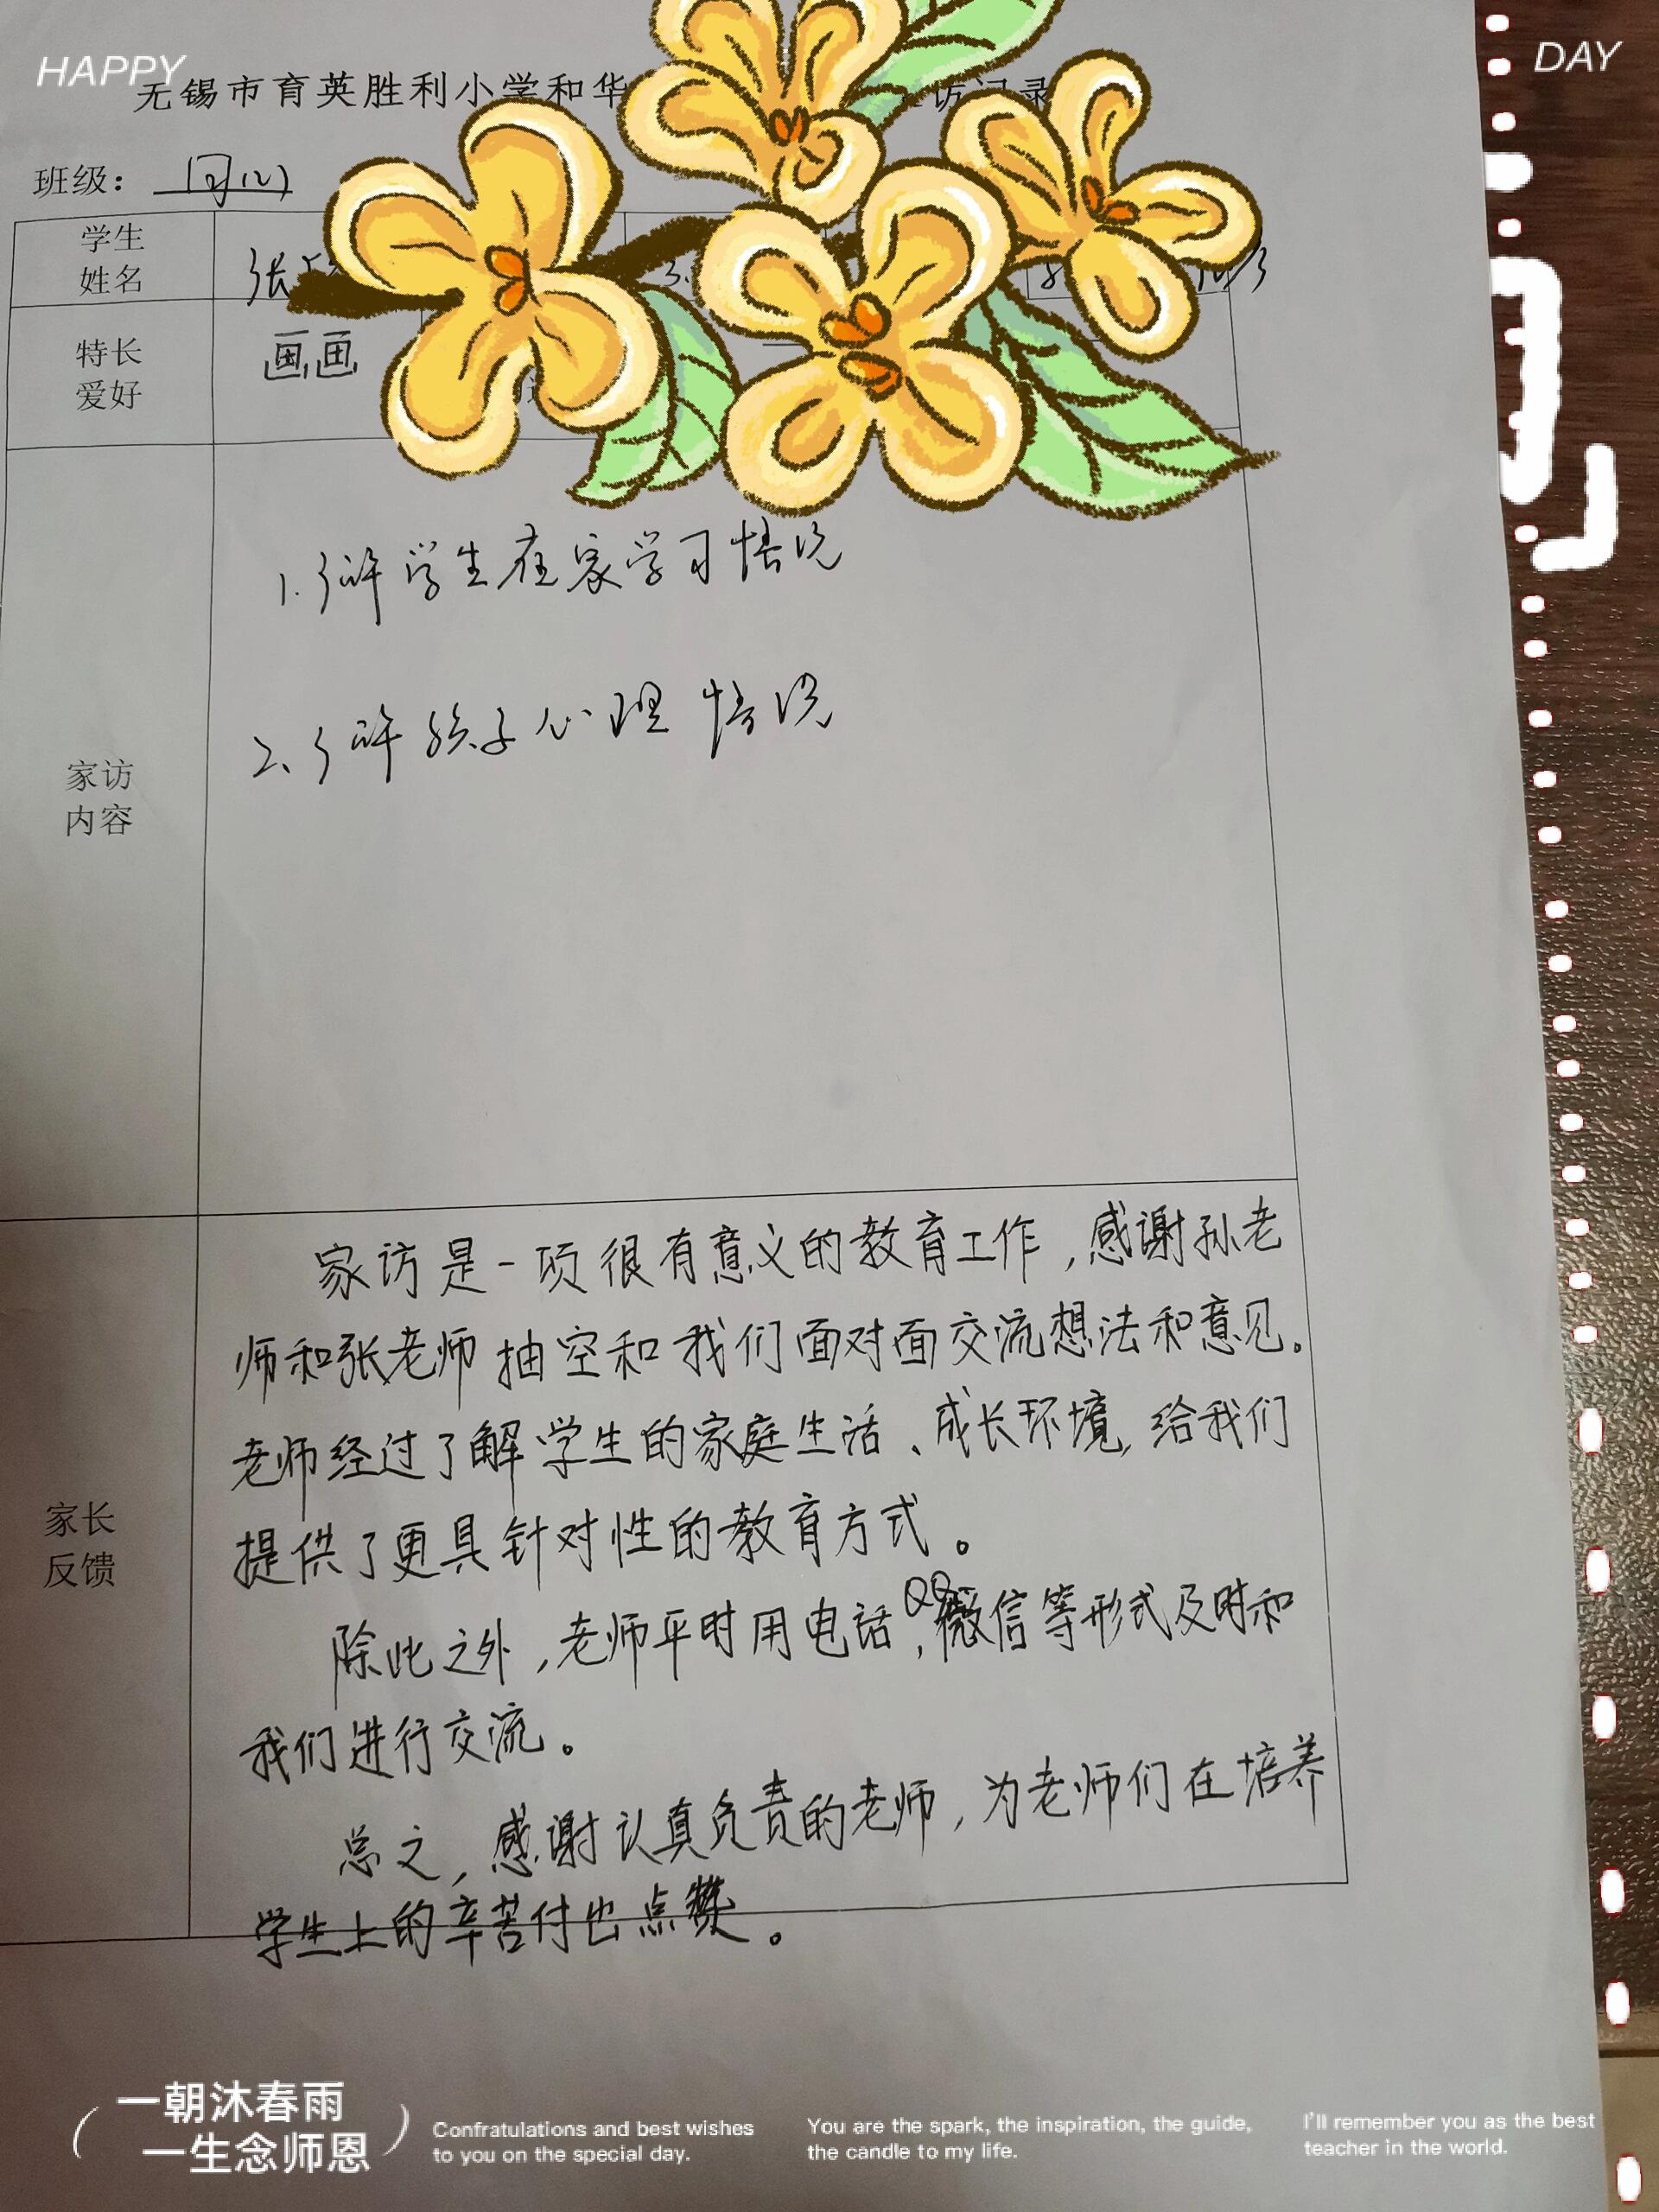 HAPPY
DAY
无锡市育英胜利小学和华
访记录
班级：
学生
姓名
张
特长
爱好
画画
家访
内容
1.了解学生在家学习情况
2、了解孩子心理情况
家长
反馈
家访是一项很有意义的教育工作，感谢孙老
师和张老师抽空和我们面对面交流想法和意见。
老师经过了解学生的家庭生活、成长环境，给我们
提供了更具针对性的教育方式。
除此之外，老师平时用电话，QQ微信等形式及时和
我们进行交流。
总之，感谢认真负责的老师，为老师们在培养
学生上的辛苦付出点赞。
一朝沐春雨
一生念师恩
Confratulations and best wishes
to you on the special day.
You are the spark, the inspiration, the guide,
the candle to my life.
I'll remember you as the best
teacher in the world.